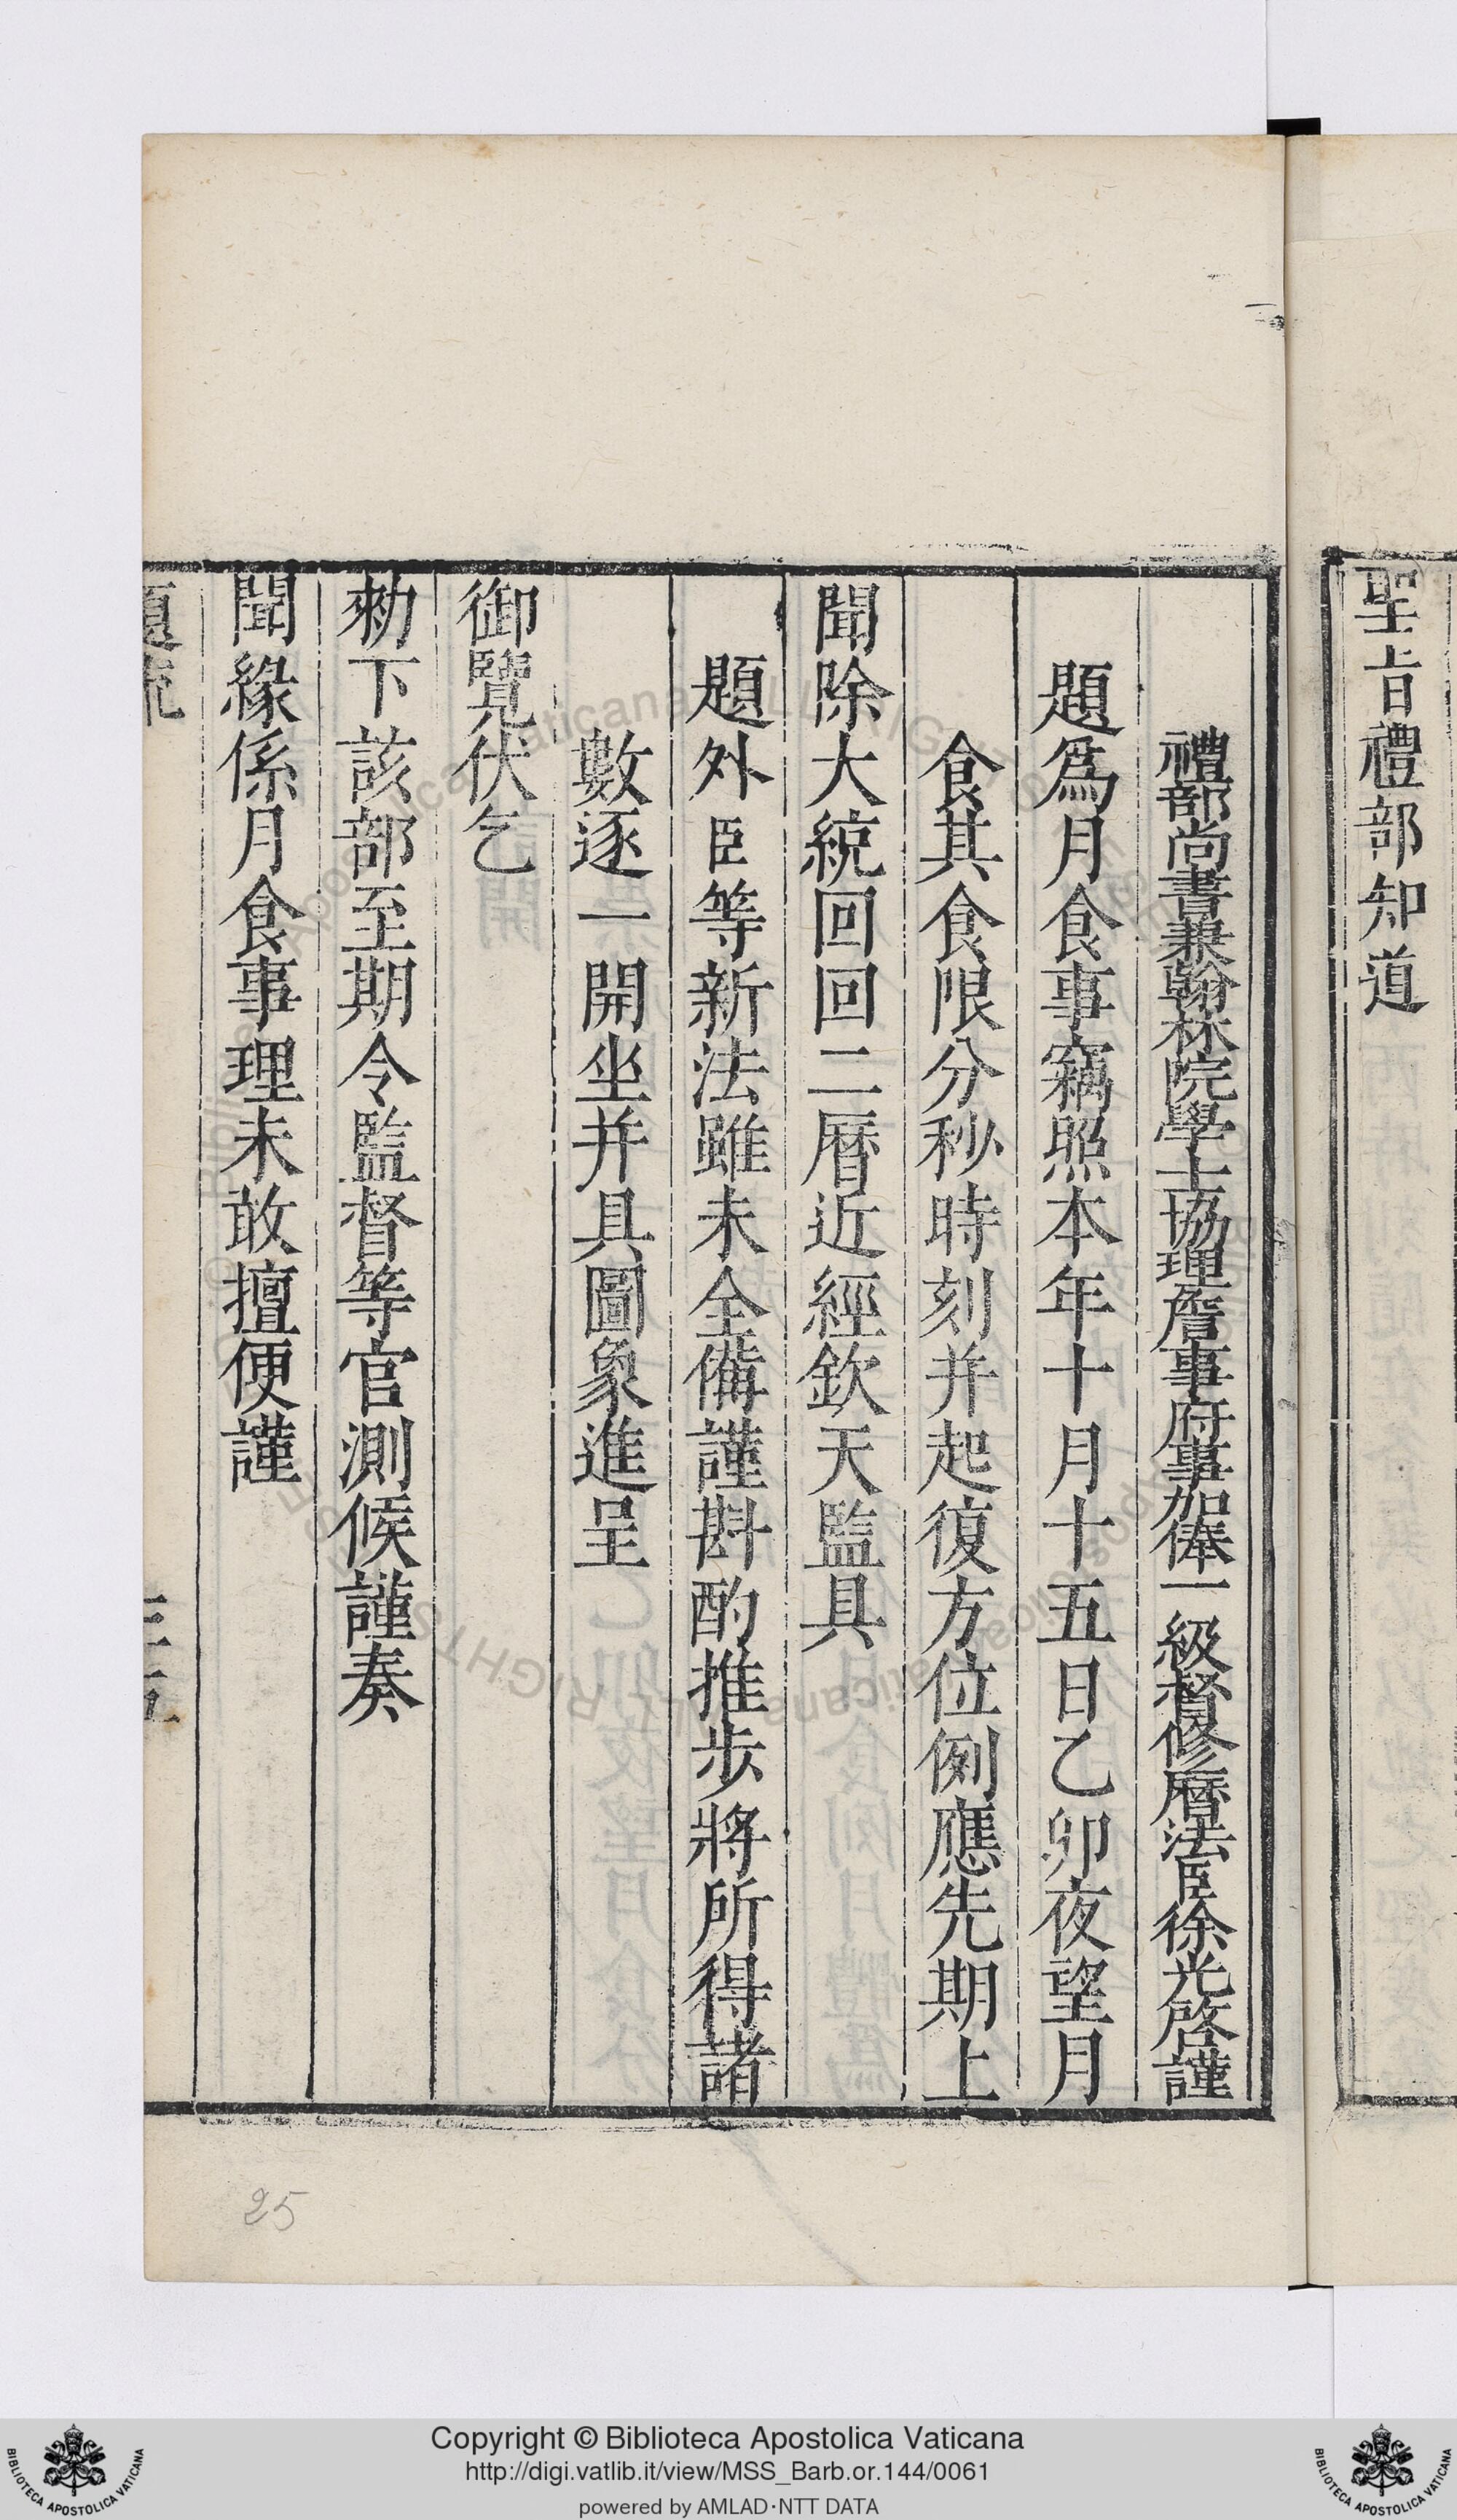 聖旨禮部知道
禮部尚書兼翰林院學士協理詹事府事加俸一級督修曆法臣徐光啓謹
題爲月食事竊照本年十月十五日乙卯夜望月
食其食限分秒時刻并起復方位例應先期上
聞除大統回回二曆近經欽天監具
題外臣等新法雖未全備謹斟酌推步將所得諸
數逐一開坐并具圖象進呈
御覽伏乞
勑下該部至期令監督等官測候謹奏
聞緣係月食事理未敢擅便謹
題疏
三五
25
Copyright © Biblioteca Apostolica Vaticana
http://digi.vatlib.it/view/MSS_Barb.or.144/0061
powered by AMLAD·NTT DATA
BIBLIOTECA APOSTOLICA VATICANA
BIBLIOTECA APOSTOLICA VATICANA